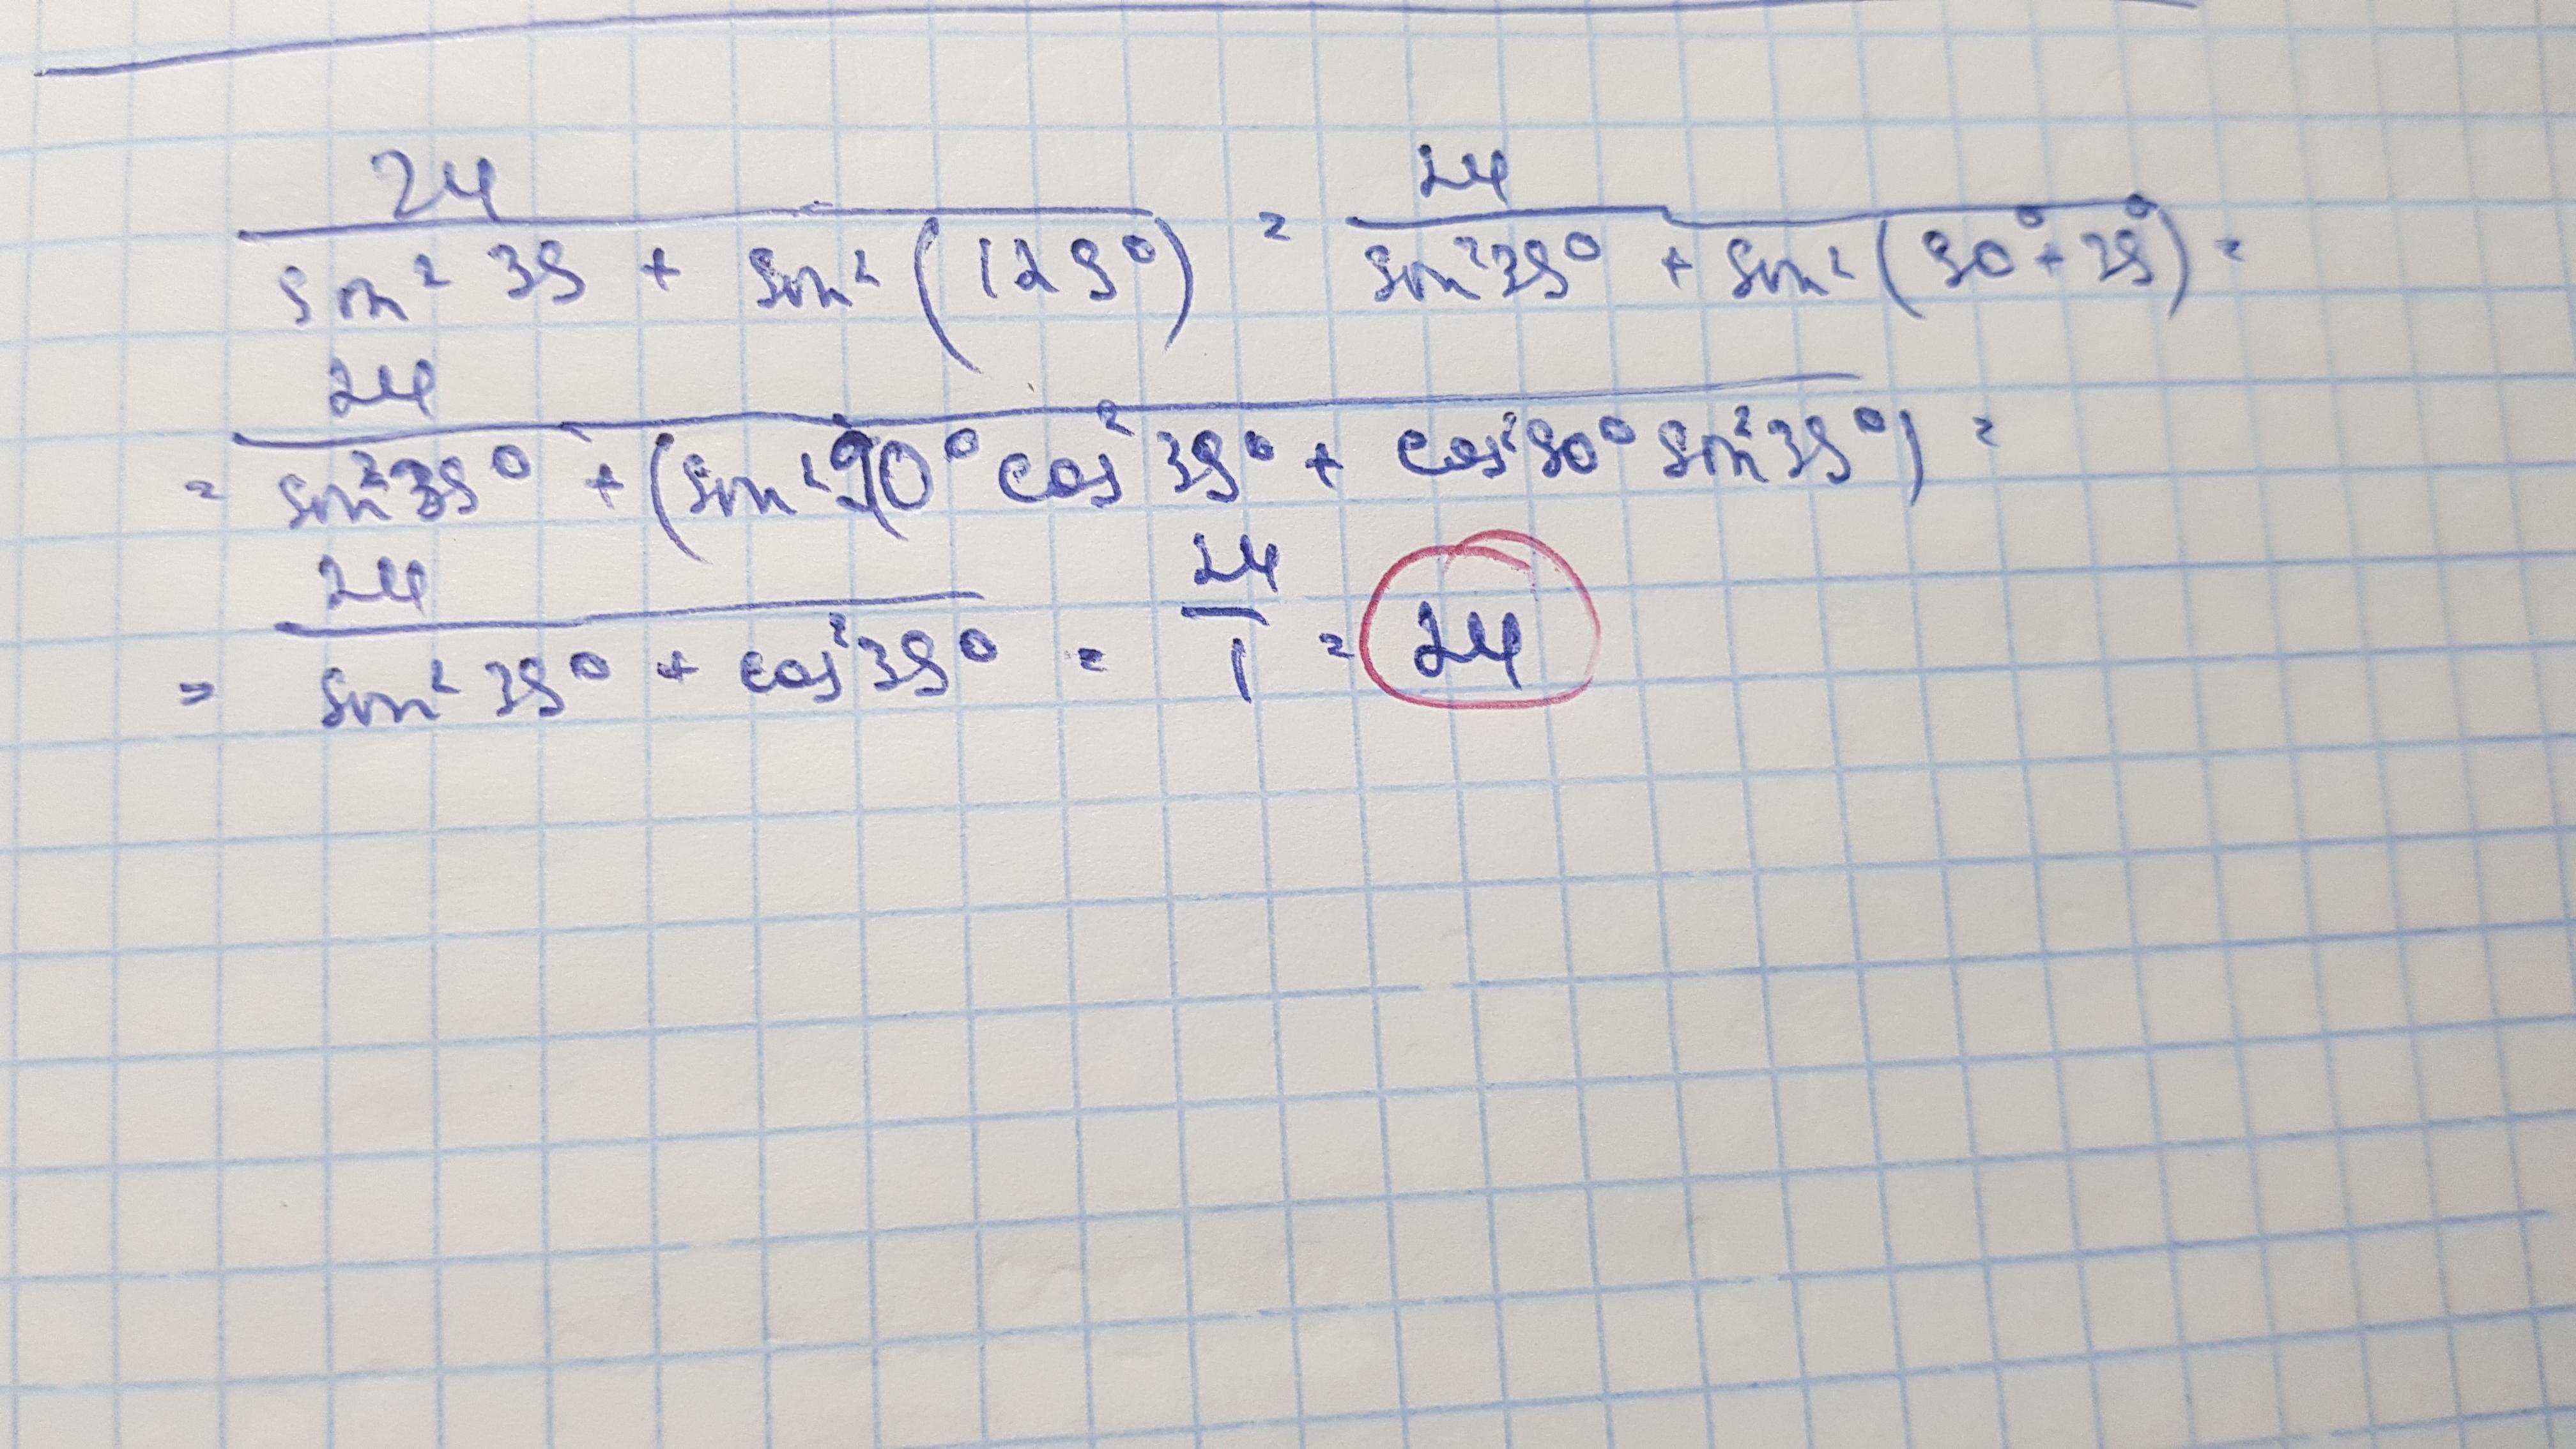 24 / (sin² 39 + sin² (129°)) = 24 / (sin² 39° + sin² (90° + 39°)) =
= 24 / (sin² 39° + (sin² 90° cos² 39° + cos² 90° sin² 39°)) =
= 24 / (sin² 39° + cos² 39°) = 24 / 1 = 24